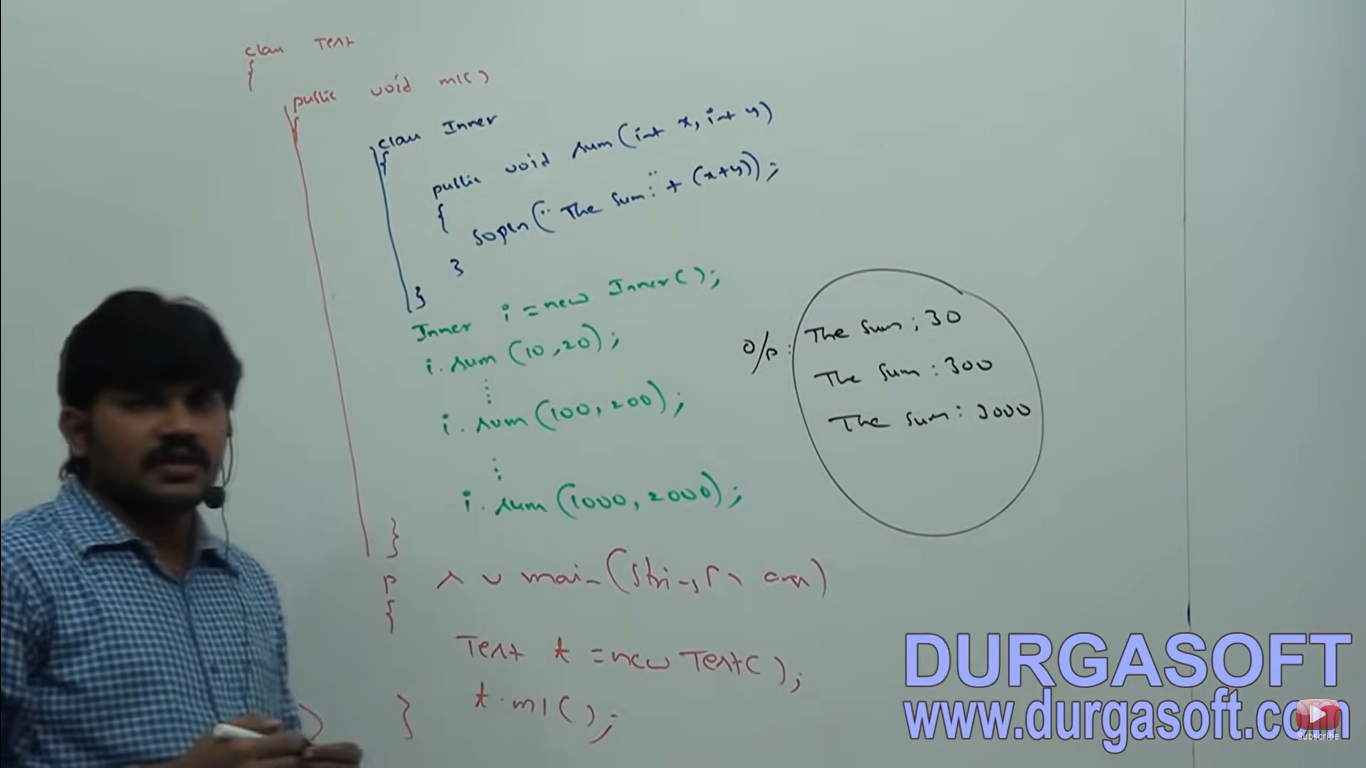 class Test
{
public void m1()
{
class Inner
{
public void sum(int x, int y)
{
sopln("The sum:" + (x+y));
}
}
Inner i = new Inner();
i.sum(10,20);
⋮
i.sum(100,200);
⋮
i.sum(1000,2000);
}
p s v main(String[] args)
{
Test t = new Test();
t.m1();
}
}
o/p:
The sum: 30
The sum: 300
The sum: 3000
DURGASOFT
www.durgasoft.com
Subscribe